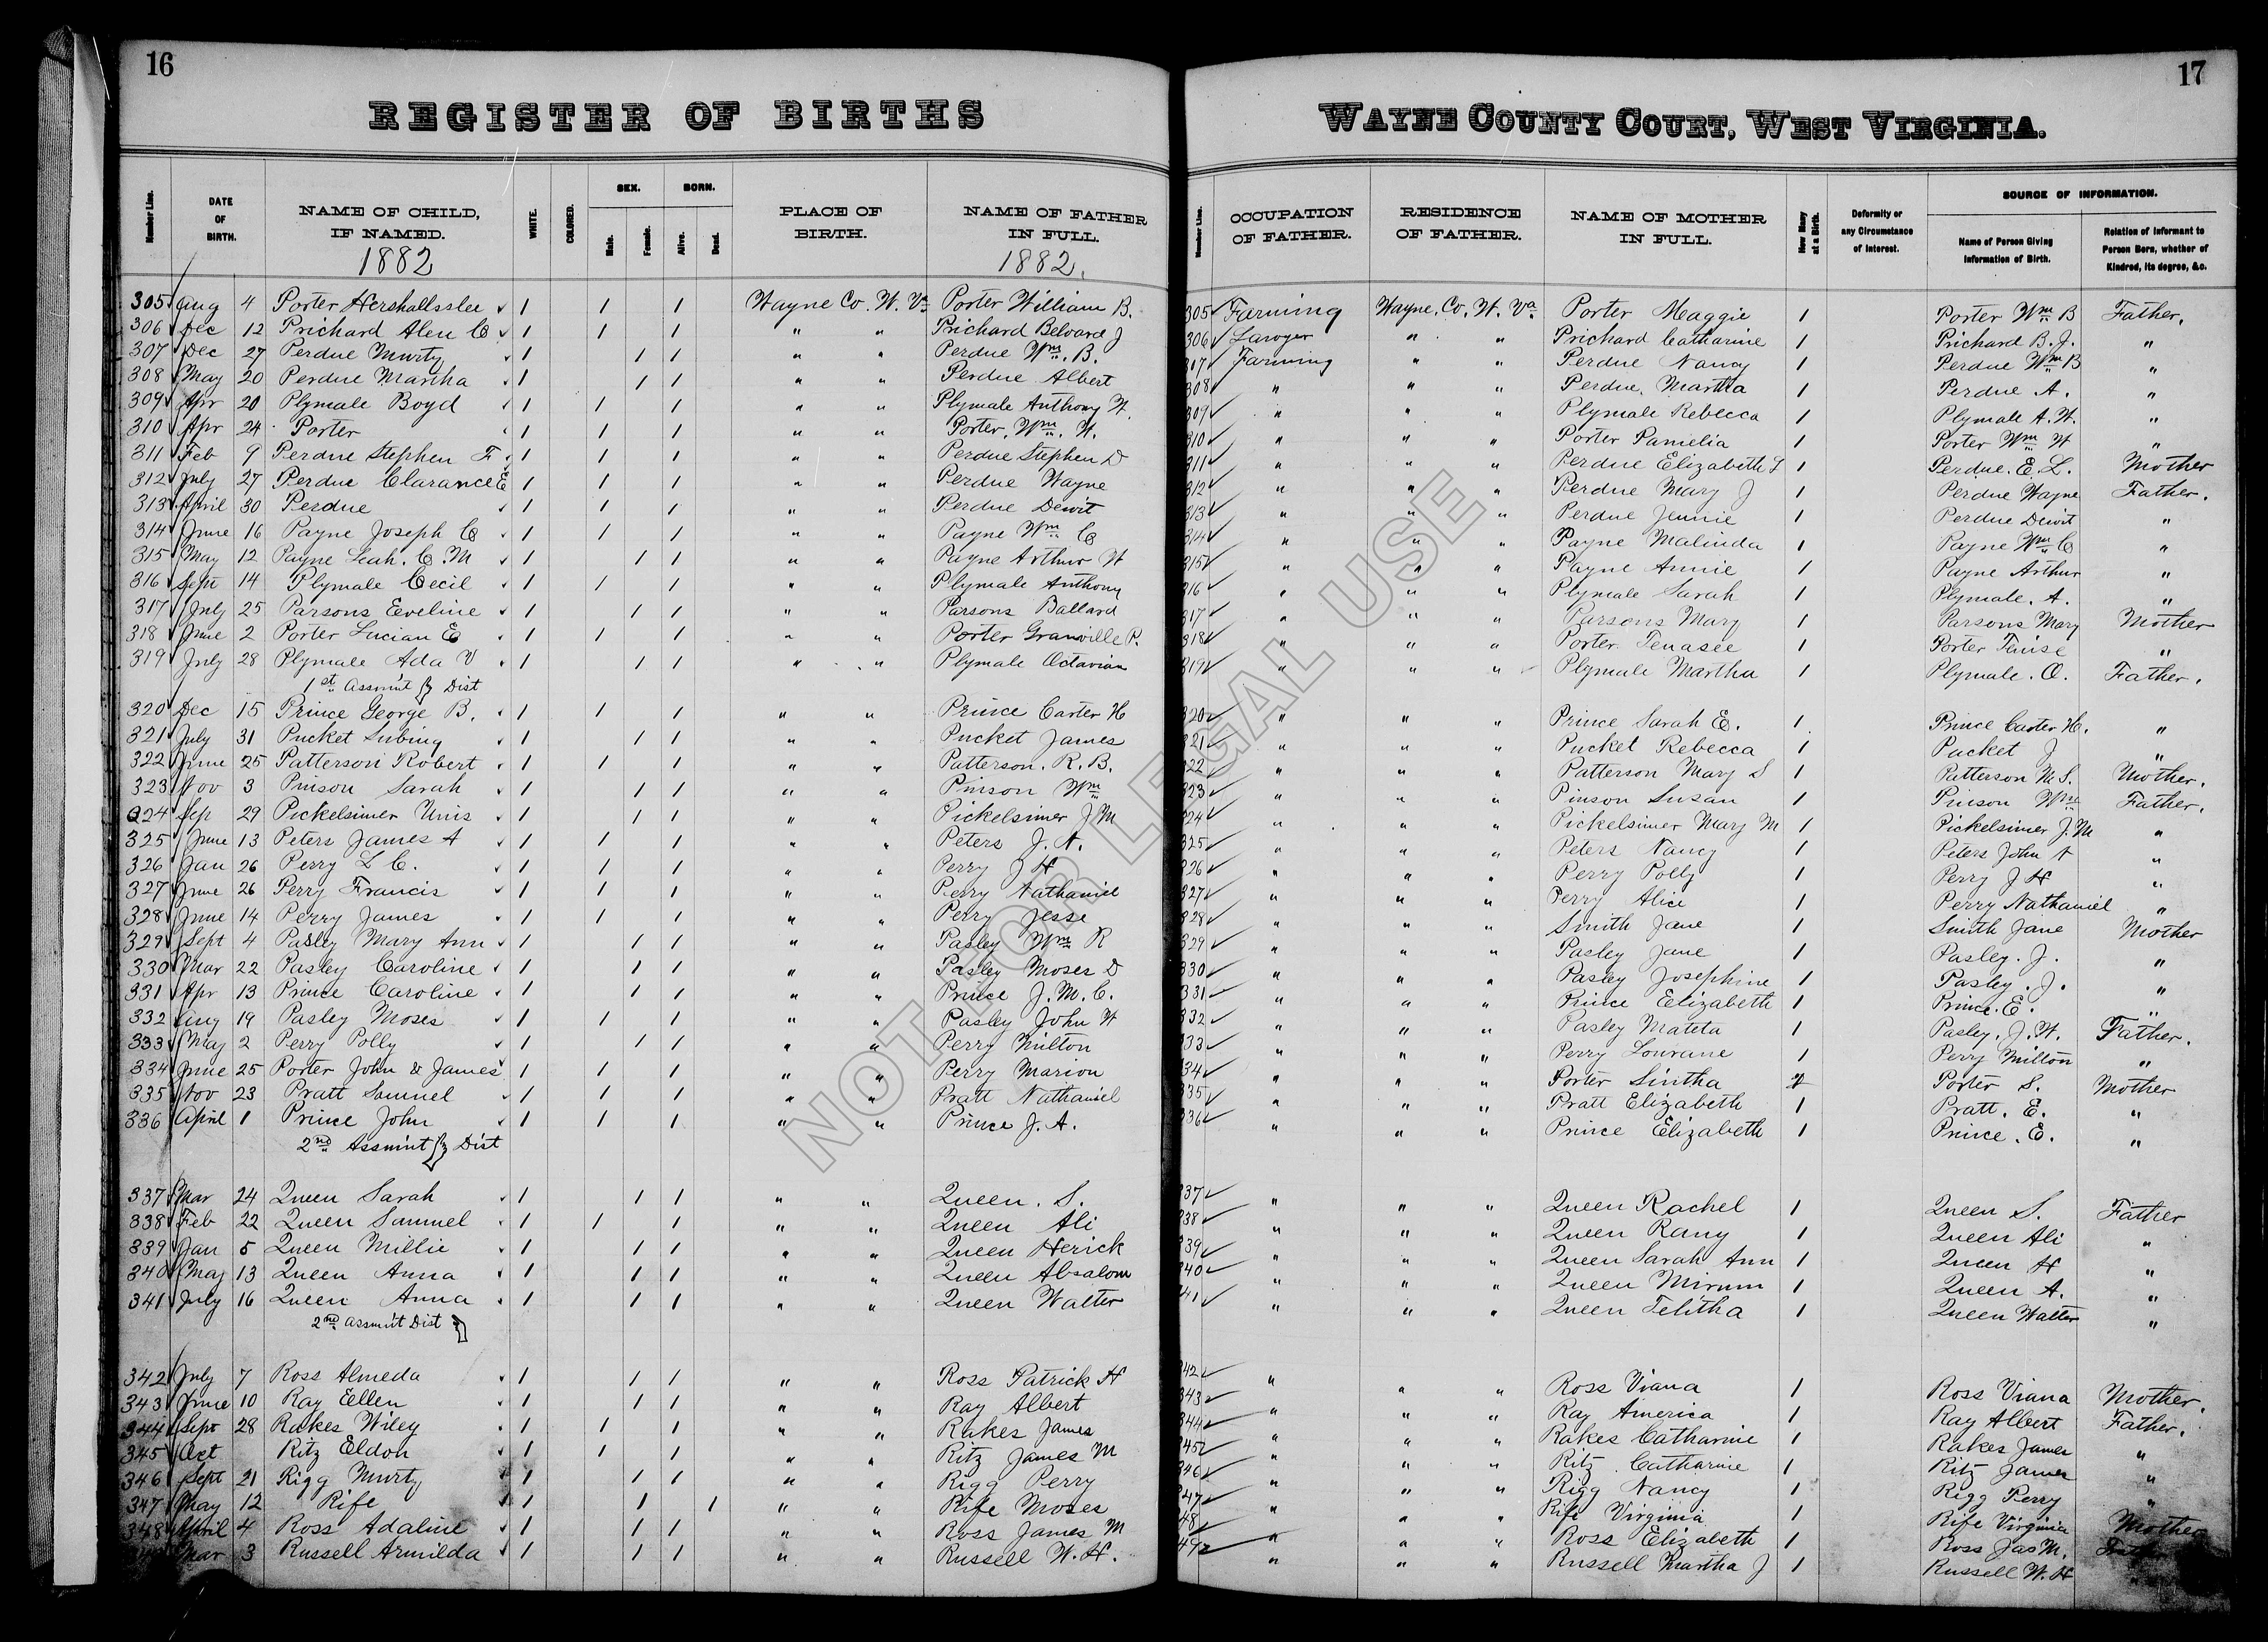 16
REGISTER OF BIRTHS
Number Line. DATE OF BIRTH. NAME OF CHILD, IF NAMED. WHITE. COLORED. SEX. Male. Female. BORN. Alive. Dead. PLACE OF BIRTH. NAME OF FATHER IN FULL.
1882 1882.
305 Aug 4 Porter Hershallsslee 1 1 1 Wayne Co. W. Va. Porter William B.
306 Dec 12 Prichard Alen C 1 1 1 " " Prichard Belvard J
307 Dec 27 Perdue Murty 1 1 1 " " Perdue Wm. B.
308 May 20 Perdue Martha 1 1 1 " " Perdue Albert
309 Apr 20 Plymale Boyd 1 1 1 " " Plymale Anthony W.
310 Apr 24 Porter 1 1 1 " " Porter, Wm. W.
311 Feb 9 Perdue Stephen F. 1 1 1 " " Perdue Stephen D
312 July 27 Perdue Clarance E 1 1 1 " " Perdue Wayne
313 April 30 Perdue 1 1 1 " " Perdue Dewit
314 June 16 Payne Joseph C 1 1 1 " " Payne Wm C
315 May 12 Payne Leah. C. M 1 1 1 " " Payne Arthur W
316 Sept 14 Plymale Cecil 1 1 1 " " Plymale Anthony
317 July 25 Parsons Eveline 1 1 1 " " Parsons Ballard
318 June 2 Porter Lucian E 1 1 1 " " Porter Granville P.
319 July 28 Plymale Ada V 1 1 1 " " Plymale Octavian
1st Assm't Dist
320 Dec 15 Prince George B. 1 1 1 " " Prince Carter H
321 July 31 Pucket Lubing 1 1 1 " " Pucket James
322 June 25 Patterson Robert 1 1 1 " " Patterson. R. B.
323 Nov 3 Pinson Sarah 1 1 1 " " Pinson Wm
324 Sep 29 Pickelsimer Unis 1 1 1 " " Pickelsimer J M
325 June 13 Peters James A 1 1 1 " " Peters J. N.
326 Jan 26 Perry L C. 1 1 1 " " Perry J H
327 June 26 Perry Francis 1 1 1 " " Perry Nathaniel
328 June 14 Perry James 1 1 1 " " Perry Jesse
329 Sept 4 Pasley Mary Ann 1 1 1 " " Pasley Wm R
330 Mar 22 Pasley Caroline 1 1 1 " " Pasley Moses D
331 Apr 13 Prince Caroline 1 1 1 " " Prince J. M. C.
332 Aug 19 Pasley Moses 1 1 1 " " Pasley John W
333 May 2 Perry Polly 1 1 1 " " Perry Milton
334 June 25 Porter John & James 1 1 1 " " Perry Marion
335 Nov 23 Pratt Samuel 1 1 1 " " Pratt Nathaniel
336 April 1 Prince John 1 1 1 " " Prince J. A.
2nd Assm't Dist
337 Mar 24 Queen Sarah 1 1 1 " " Queen. S.
338 Feb 22 Queen Samuel 1 1 1 " " Queen Ali
339 Jan 5 Queen Millie 1 1 1 " " Queen Herick
340 May 13 Queen Anna 1 1 1 " " Queen Absalom
341 July 16 Queen Anna 1 1 1 " " Queen Walter
2nd Assm't Dist
342 July 7 Ross Almeda 1 1 1 " " Ross Patrick H
343 June 10 Ray Ellen 1 1 1 " " Ray Albert
344 Sept 28 Rakes Wiley 1 1 1 " " Rakes James
345 Oct Ritz Eldon 1 1 1 " " Ritz James M
346 Sept 21 Rigg Murty 1 1 1 " " Rigg Perry
347 May 12 Rife 1 1 1 " " Rife Moses
348 April 4 Ross Adaline 1 1 1 " " Ross James M
Mar 3 Russell Armilda 1 1 1 " " Russell W. H.
17
WAYNE COUNTY COURT, WEST VIRGINIA.
Number Line. OCCUPATION OF FATHER. RESIDENCE OF FATHER. NAME OF MOTHER IN FULL. How Many at a Birth. Deformity or any Circumstance of Interest. SOURCE OF INFORMATION. Name of Person Giving Information of Birth. Relation of Informant to Person Born, whether of Kindred, its degree, &c.
305 Farming Wayne, Co. W. Va. Porter Maggie 1 Porter Wm B Father.
306 Lawyer " " Prichard Catharine 1 Prichard B. J. "
317 Farming " " Perdue Nancy 1 Perdue Wm B "
308 " " " Perdue. Martha 1 Perdue A. "
309 " " " Plymale Rebecca 1 Plymale A. W. "
310 " " " Porter Pamelia 1 Porter Wm W "
311 " " " Perdue Elizabeth L 1 Perdue. E. L. Mother
312 " " " Perdue Mary J 1 Perdue Wayne Father.
313 " " " Perdue Jennie 1 Perdue Dewit "
314 " " " Payne Malinda 1 Payne Wm C "
315 " " " Payne Annie 1 Payne Arthur "
316 " " " Plymale Sarah 1 Plymale. A. "
317 " " " Parsons Mary 1 Parsons Mary Mother
318 " " " Porter Tenasee 1 Porter Tenise "
319 " " " Plymale Martha 1 Plymale. O. Father.
320 " " " Prince Sarah E. 1 Prince Carter H. "
321 " " " Pucket Rebecca 1 Pucket J "
322 " " " Patterson Mary S 1 Patterson M. S. Mother.
323 " " " Pinson Susan 1 Pinson Wm Father.
324 " " " Pickelsimer Mary M 1 Pickelsimer J. M "
325 " " " Peters Nancy 1 Peters John N "
326 " " " Perry Polly 1 Perry J H "
327 " " " Perry Alice 1 Perry Nathaniel "
328 " " " Smith Jane 1 Smith Jane Mother
329 " " " Pasley Jane 1 Pasley. J. "
330 " " " Pasley Josephine 1 Pasley. J. "
331 " " " Prince Elizabeth 1 Prince. E. "
332 " " " Pasley Mateta 1 Pasley. J. W. Father.
333 " " " Perry Lourane 1 Perry Milton "
334 " " " Porter Sintha 2 Porter S. Mother
335 " " " Pratt Elizabeth 1 Pratt. E. "
336 " " " Prince Elizabeth 1 Prince. E. "
337 " " " Queen Rachel 1 Queen S. Father
338 " " " Queen Rany 1 Queen Ali "
339 " " " Queen Sarah Ann 1 Queen H "
340 " " " Queen Mirum 1 Queen A. "
341 " " " Queen Telitha 1 Queen Walter "
342 " " " Ross Viana 1 Ross Viana Mother.
343 " " " Ray America 1 Ray Albert Father.
344 " " " Rakes Catharine 1 Rakes James "
345 " " " Ritz Catharine 1 Ritz James "
346 " " " Rigg Nancy 1 Rigg Perry "
347 " " " Rife Virginia 1 Rife Virginia Mother
48 " " " Ross Elizabeth 1 Ross Jas M. Father
49 " " " Russell Martha J 1 Russell W. H
NOT FOR LEGAL USE